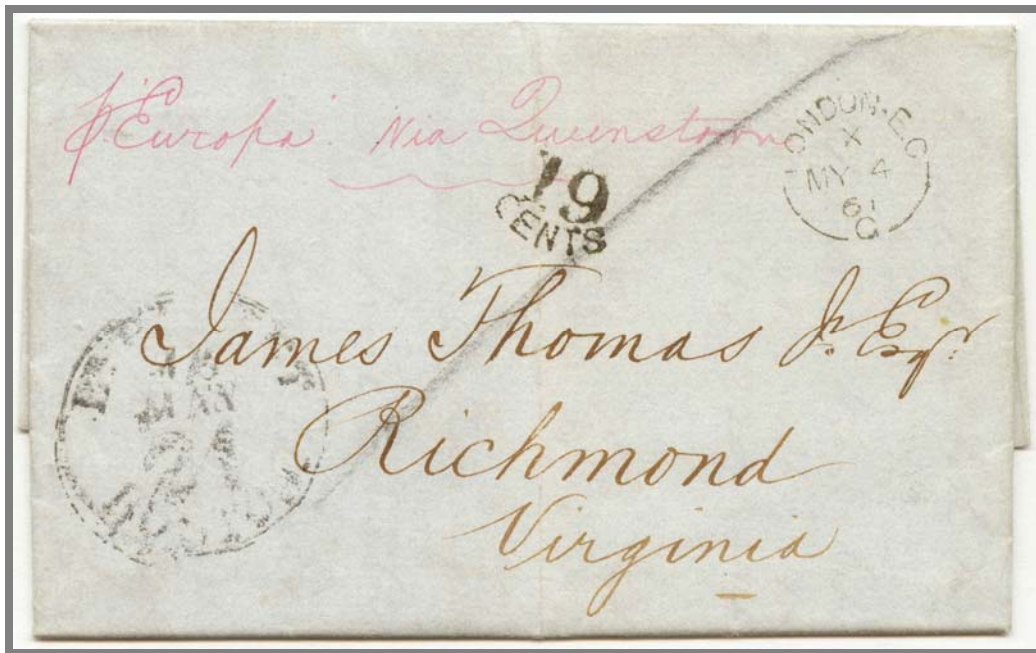 pr Europa Via Queenstown
LONDON·E.C
X
MY 4
61
C
19
CENTS
James Thomas Jr. Esqr.
Richmond
Virginia
MAY
BOSTON